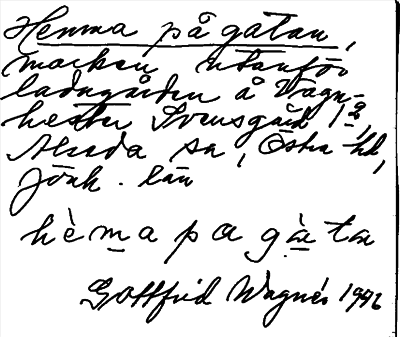 Hemma på gatan,
marken utanför
ladugården å Vägn-
hester Svensgård 1⁠a,
Alseda sn, Östra hd,
Jönk. län
hèmapagàta
Gottfrid Wagnér 1946